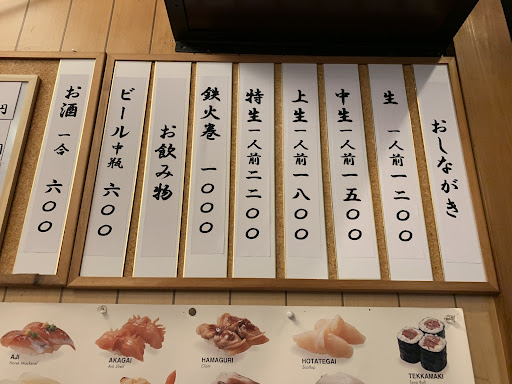 おしながき
生 一人前 一二〇〇
中生 一人前 一五〇〇
上生 一人前 一八〇〇
特生 一人前 二二〇〇
鉄火巻 一〇〇〇
お飲み物
ビール 中瓶 六〇〇
お酒 一合 六〇〇
円
AJI
Horse Mackerel
AKAGAI
Ark Shell
HAMAGURI
Clam
HOTATEGAI
Scallop
TEKKAMAKI
Tuna Roll